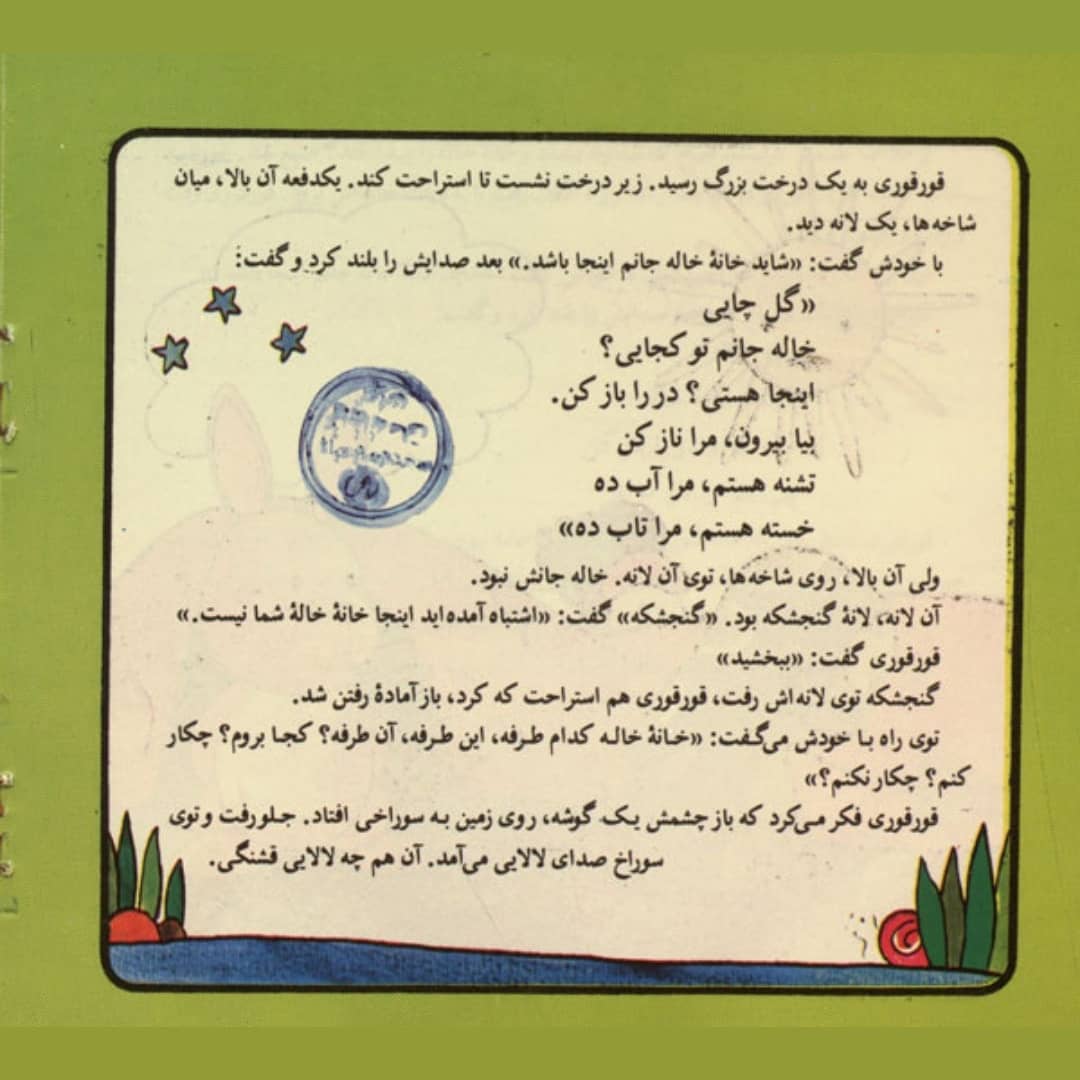 قورقوری به یک درخت بزرگ رسید. زیر درخت نشست تا استراحت کند. یکدفعه آن بالا، میان
شاخه‌ها، یک لانه دید.
با خودش گفت: «شاید خانهٔ خاله جانم اینجا باشد.» بعد صدایش را بلند کرد و گفت:
«گل چایی
خاله جانم تو کجایی؟
اینجا هستی؟ در را باز کن.
بیا بیرون، مرا ناز کن
تشنه هستم، مرا آب ده
خسته هستم، مرا تاب ده»
ولی آن بالا، روی شاخه‌ها، توی آن لانه. خاله جانش نبود.
آن لانه، لانهٔ گنجشکه بود. «گنجشکه» گفت: «اشتباه آمده‌اید اینجا خانهٔ خالهٔ شما نیست.»
قورقوری گفت: «ببخشید»
گنجشکه توی لانه‌اش رفت، قورقوری هم استراحت که کرد، باز آمادهٔ رفتن شد.
توی راه با خودش می‌گفت: «خانهٔ خاله کدام طرفه، این طرفه، آن طرفه؟ کجا بروم؟ چکار
کنم؟ چکار نکنم؟»
قورقوری فکر می‌کرد که باز چشمش یک گوشه، روی زمین به سوراخی افتاد. جلو رفت و توی
سوراخ صدای لالایی می‌آمد. آن هم چه لالایی قشنگی.